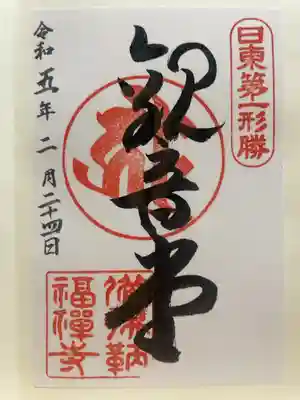 日東第一形勝
観音堂
令和五年二月二十四日
備後鞆
福禪寺